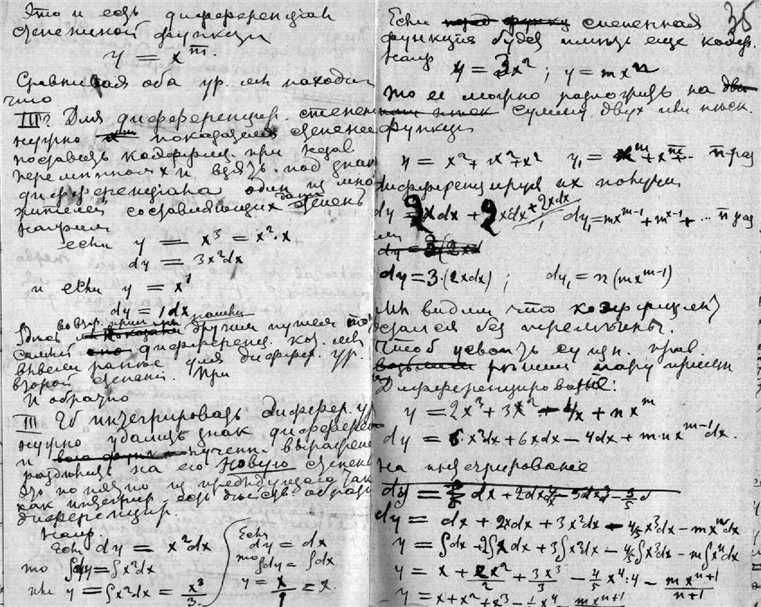 Это и есть дифференциал
степенной функции
y = x^m.
Сравнивая оба ур. мы находим
что
III. Для дифференцир. степен
нужно показателя степенее
поставить коэффиц. при
переменном x и взять под знак
дифференциала один из мно
жителей составляющих степень
напр
если y = x³ = x²·x
dy = 3x²dx
и если y = x¹
dy = 1dx
другим путем
дифференц. кот. мы
вывели ранее для диффер. ур.
второй степени. При
И обратно
III интегрировать диффер. ур
нужно удалить знак дифферен
и выражен
разделить на его новую степень
это понятно из предыдущего так
как интегрир есть действ. обратн
дифференцир.
Напр.
Если dy = x²dx
то ∫dy = ∫x²dx
или y = ∫x²dx = x³/3
Если
dy = dx
то ∫dy = ∫dx
y = x/1 = x.
35
Если степенная
функция будет иметь еще коэф.
напр
y = 3x² ; y = mx^n
то ее можно разложить на
сумму двух или неск.
функци
y = x² + x² + x² y₁ = x^m + x^m + ... n раз
дифференцируя их получи
dy = 2xdx + 2xdx + 2xdx dy₁ = mx^m-1 + mx^m-1 + ... n раз
dy = 3·(2xdx) ; dy₁ = n(mx^m-1)
Мы видим что коэффициент
остался без перемены.
Чтоб усвоить эти прав.
решим пару пример
Дифференцирование:
y = 2x³ + 3x² - 4x + nx^m
dy = 6·x²dx + 6xdx - 4dx + m·nx^m-1dx.
на интегрирование
dy = dx + 2xdx + 3x²dx - 4/5x³dx - mx^n dx
y = ∫dx + 2∫xdx + 3∫x²dx - 4/5∫x³dx - m∫x^n dx
y = x + 2x²/2 + 3x³/3 - 4/5x⁴:4 - mx^n+1/n+1
y = x + x² + x³ - 1/5x⁴ - mx^n+1